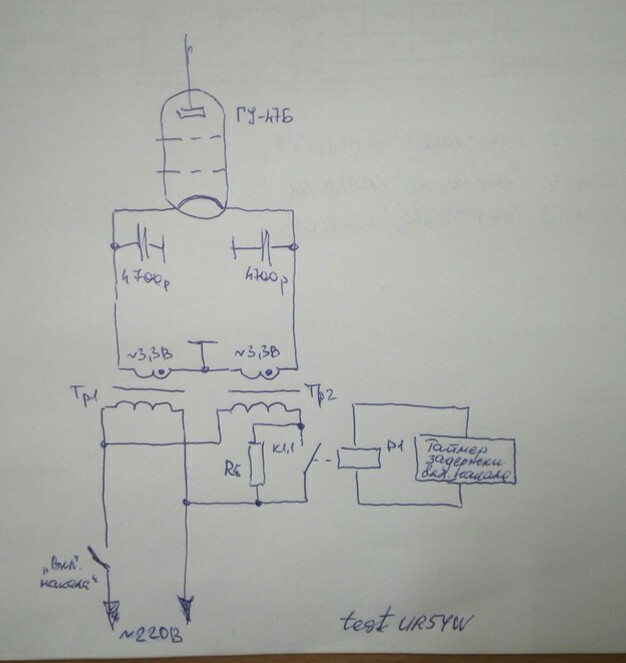 ГУ-47Б
4700р
4700р
~3,3В
~3,3В
Тр1
Тр2
Rб
К1,1
Р1
Таймер
задержки
вкл. накала
"Вкл".
накала"
~220В
test UR5YW